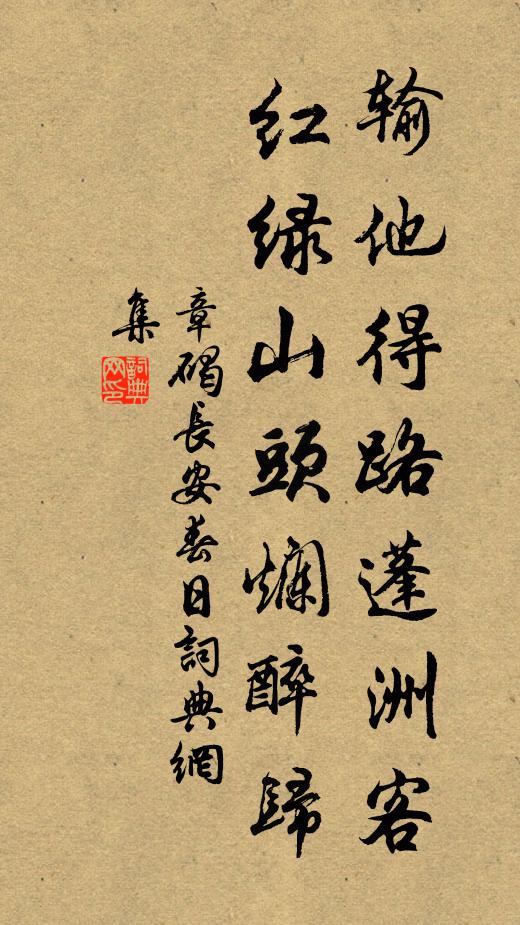 输他得路蓬洲客
红绿山头爛醉歸
章碣長安春日詞典網
集
詞典
网印